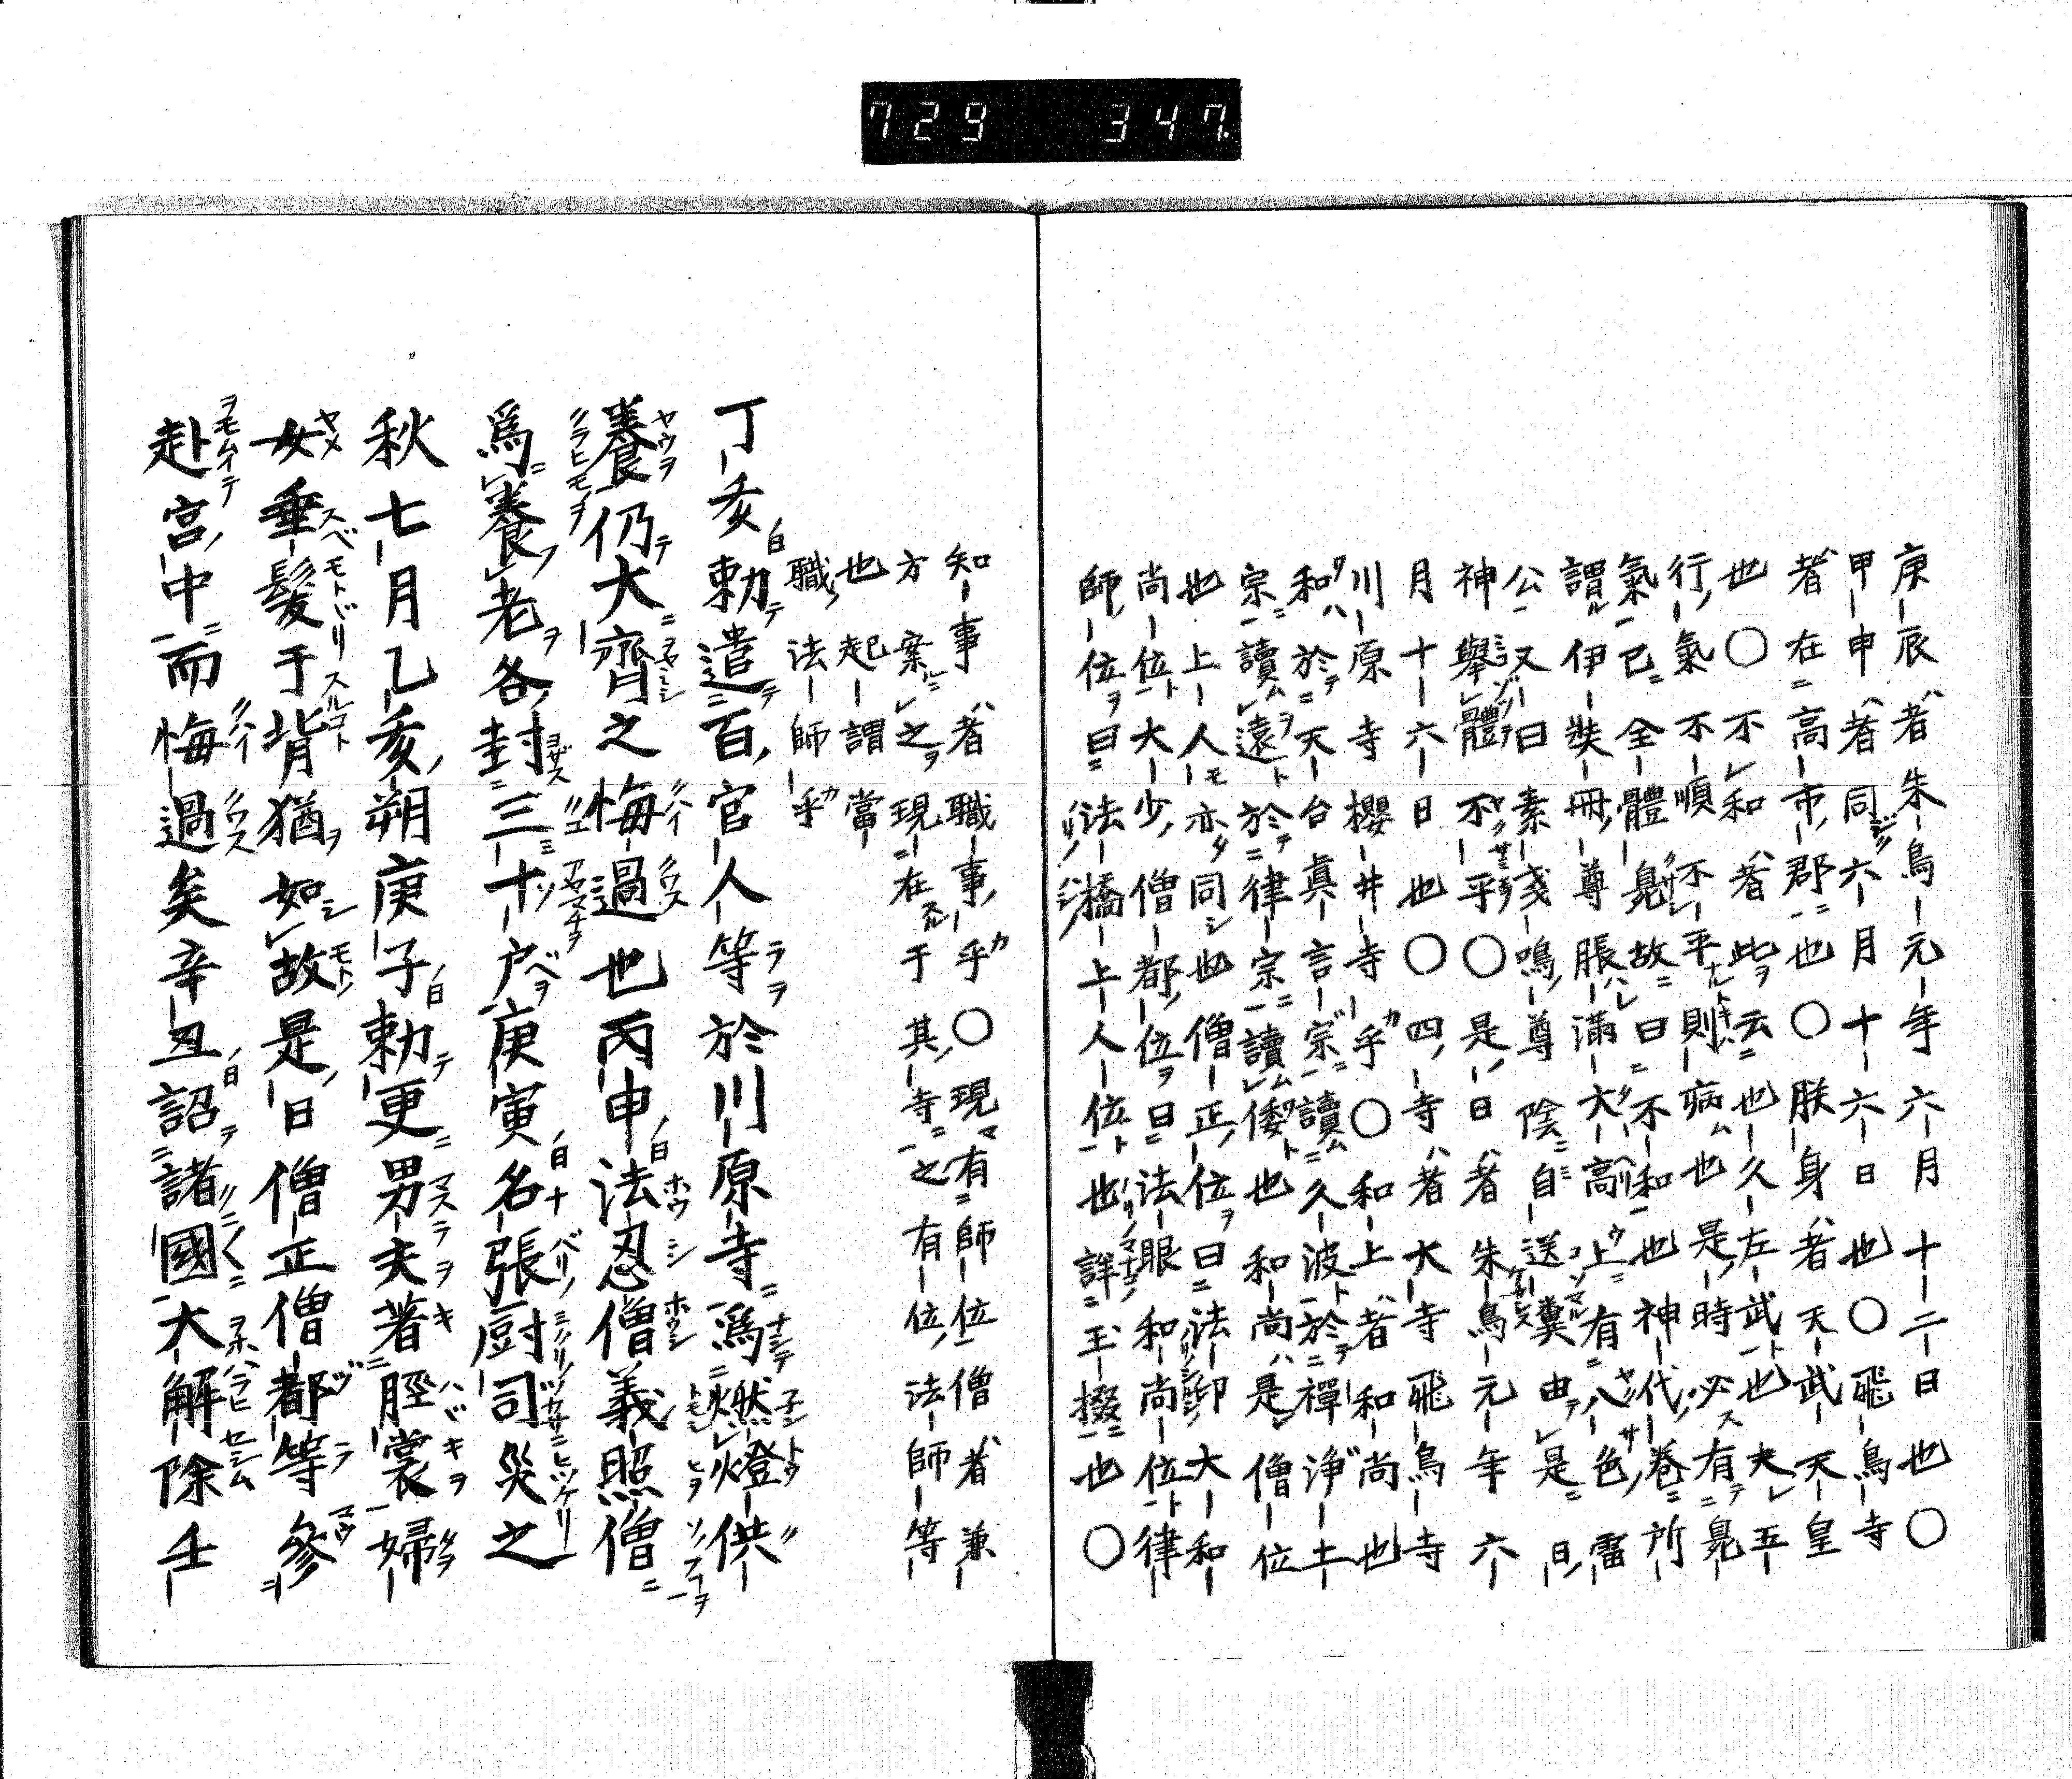 729 347
庚辰者朱鳥元年六月十二日也〇
甲申者同六月十六日也〇飛鳥寺
者在高市郡也〇朕身者天武天皇
也〇不和者此云也久左武也夫五
行氣不順不平則病也是時必有晃
氣已全體晃故曰不和也神代卷所
謂伊奘冊尊脹滿大高上有八色雷
公又曰素戔鳴尊陰自送糞由是日
神擧體不平〇是日者朱鳥元年六
月十六日也〇四寺者大寺飛鳥寺
川原寺櫻井寺乎〇和上者和尚也
和於天台真言宗讀久波於禪浄土
宗讀遠於律宗讀倭也和尚是僧位
也上人亦同也僧正位曰法印大和
尚位大少僧都位曰法眼和尚位律
師位曰法橋上人位也詳玉掇也〇
知事者職事乎〇現有師位僧者兼
方案之現在于其寺之有位法師等
也起謂當
職法師乎
丁亥勅遣百官人等於川原寺爲燃燈供
養仍大齊之悔過也丙申法忍僧義照僧
爲養老各封三十戸庚寅名張厨司災之
秋七月乙亥朔庚子勅更男夫著脛裳婦
女垂髮于背猶如故是日僧正僧都等參
赴宮中而悔過矣辛丑詔諸國大解除壬